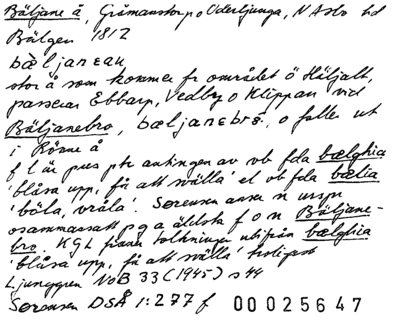 Bäljane å, Gråmanstorp o Oderljunga, N Åsbo hd
Bälgen 1812
bæljanean
stor å som kommer fr området ö Häljalt,
passerar Ebbarp, Vedby o Klippan vid
Bäljanebro, bæljanebro, o faller ut
i Rönne å
f l är pres ptc antingen av vb fda bælghia
'blåsa upp, få att svälla' el vb fda bælia
'böla, vråla'. Sørensen anser n urspr
osammansatt p g a äldsta f o n Bäljane-
bro. KGL finner tolkningen utifrån bælghia
'blåsa upp, få att svälla' troligast
Ljunggren NoB 33 (1945) s 44
Sørensen DSÅ 1:277 f 00025647